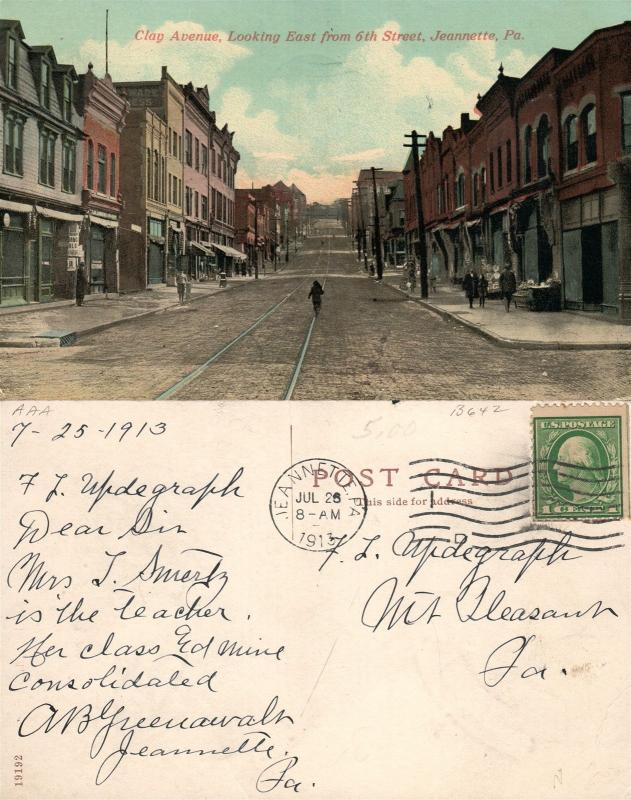 Clay Avenue, Looking East from 6th Street, Jeannette, Pa.
AAA
B642
7-25-1913
5.00
F L Updegraph
Dear Sir
Mrs I. Smertz
is the teacher.
Her class Ed mine
Consolidated
AB Greenawalt
Jeannette.
Pa.
19192
POST CARD
This side for address
JEANNETTE, PA.
JUL 26
8-AM
1913
U.S. POSTAGE
1 CENT 1
F. L. Updegraph
Mt Pleasant
Pa.